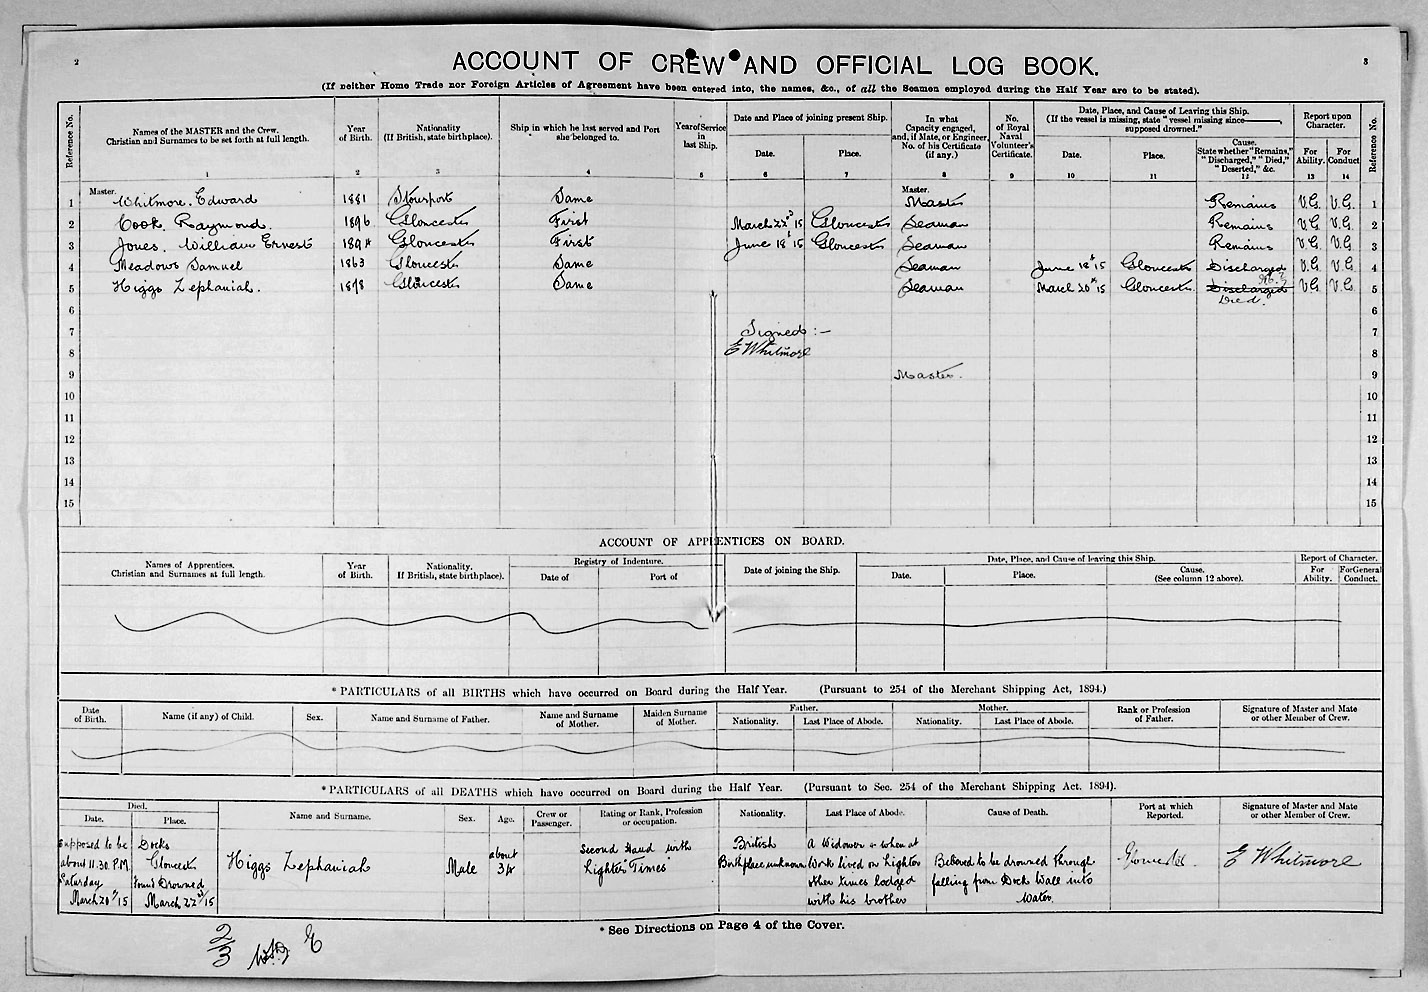 2
3
ACCOUNT OF CREW AND OFFICIAL LOG BOOK.
(If neither Home Trade nor Foreign Articles of Agreement have been entered into, the names, &c., of all the Seamen employed during the Half Year are to be stated).
Reference No.
Names of the MASTER and the Crew.
Christian and Surnames to be set forth at full length.
1
Year
of Birth.
2
Nationality
(If British, state birthplace).
3
Ship in which he last served and Port
she belonged to.
4
Year of Service
in
last Ship.
5
Date and Place of joining present Ship.
Date.
6
Place.
7
In what
Capacity engaged,
and, if Mate, or Engineer,
No. of his Certificate
(if any.)
8
No.
of Royal
Naval
Volunteer's
Certificate.
9
Date, Place, and Cause of Leaving this Ship.
(If the vessel is missing, state "vessel missing since
supposed drowned."
Date.
10
Place.
11
Cause.
State whether "Remains,"
"Discharged," "Died,"
"Deserted," &c.
12
Report upon
Character.
For
Ability.
13
For
Conduct
14
Reference No.
Master.
Master.
1 Whitmore. Edward 1881 Stourport Same Master Remains V.G. V.G. 1
2 Cook Raymond. 1896 Gloucester First March 22nd 15 Gloucester Seaman Remains V.G. V.G. 2
3 Jones. William Ernest 1894 Gloucester First June 18t 15 Gloucester Seaman Remains V.G. V.G. 3
4 Meadows Samuel 1863 Gloucester Same Seaman June 18t 15 Gloucester Discharged V.G. V.G. 4
5 Higgs Zephaniah. 1878 Gloucester Same Seaman March 20th 15 Gloucester. Discharged V.G. V.G. 5
Died.
6 6
7 Signed:- 7
8 E Whitmore 8
9 Master. 9
10 10
11 11
12 12
13 13
14 14
15 15
ACCOUNT OF APPRENTICES ON BOARD.
Names of Apprentices.
Christian and Surnames at full length.
Year
of Birth.
Nationality.
If British, state birthplace).
Registry of Indenture.
Date of
Port of
Date of joining the Ship.
Date, Place, and Cause of leaving this Ship.
Date.
Place.
Cause.
(See column 12 above).
Report of Character.
For
Ability.
For General
Conduct.
*PARTICULARS of all BIRTHS which have occurred on Board during the Half Year. (Pursuant to 254 of the Merchant Shipping Act, 1894.)
Date
of Birth.
Name (if any) of Child.
Sex.
Name and Surname of Father.
Name and Surname
of Mother.
Maiden Surname
of Mother.
Father.
Nationality.
Last Place of Abode.
Mother.
Nationality.
Last Place of Abode.
Rank or Profession
of Father.
Signature of Master and Mate
or other Member of Crew.
*PARTICULARS of all DEATHS which have occurred on Board during the Half Year. (Pursuant to Sec. 254 of the Merchant Shipping Act. 1894).
Died.
Date.
Place.
Name and Surname.
Sex.
Age.
Crew or
Passenger.
Rating or Rank, Profession
or occupation.
Nationality.
Last Place of Abode.
Cause of Death.
Port at which
Reported.
Signature of Master and Mate
or other Member of Crew.
Supposed to be
about 11.30 P.M
Saturday
March 20th/15
Docks
Gloucester
Found Drowned
March 22nd/15
Higgs Zephaniah
Male
about
34
Second Hand with
Lighter "Times"
British
Birthplace unknown
A Widower & when at
Work lived on Lighter
other times lodged
with his brother
Believed to be drowned through
falling from Dock Wall into
Water.
Gloucester
E Whitmore
*See Directions on Page 4 of the Cover.
2/3